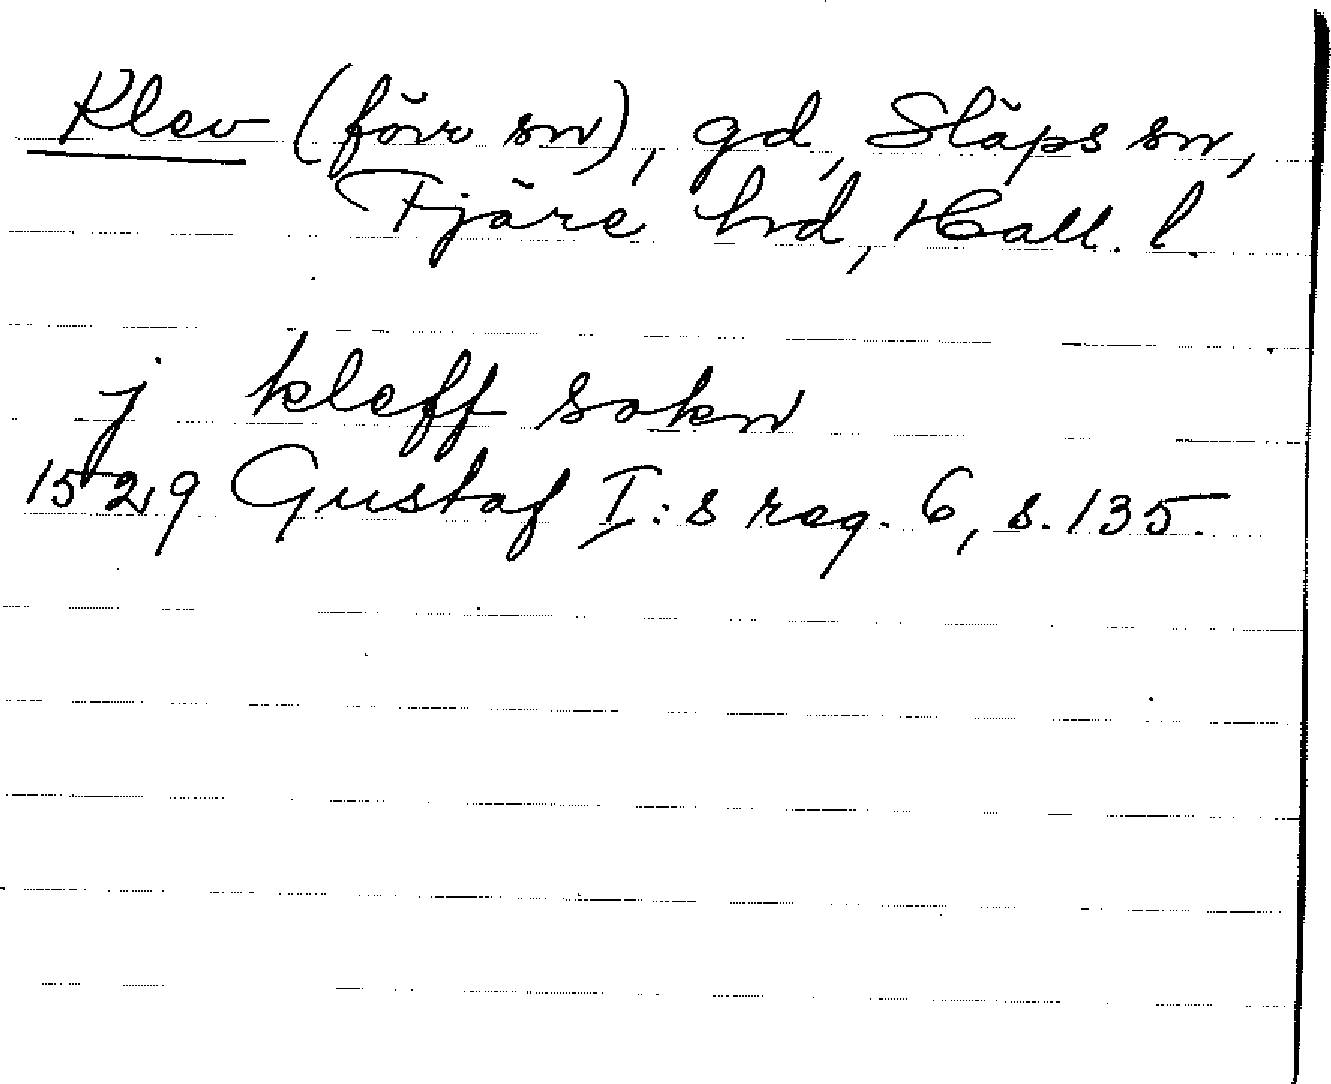 Klev (förr sn), gd, Släps sn,
Fjäre hd, Hall. l.
j kleff sokn
1529 Gustaf I:s reg. 6, s. 135.